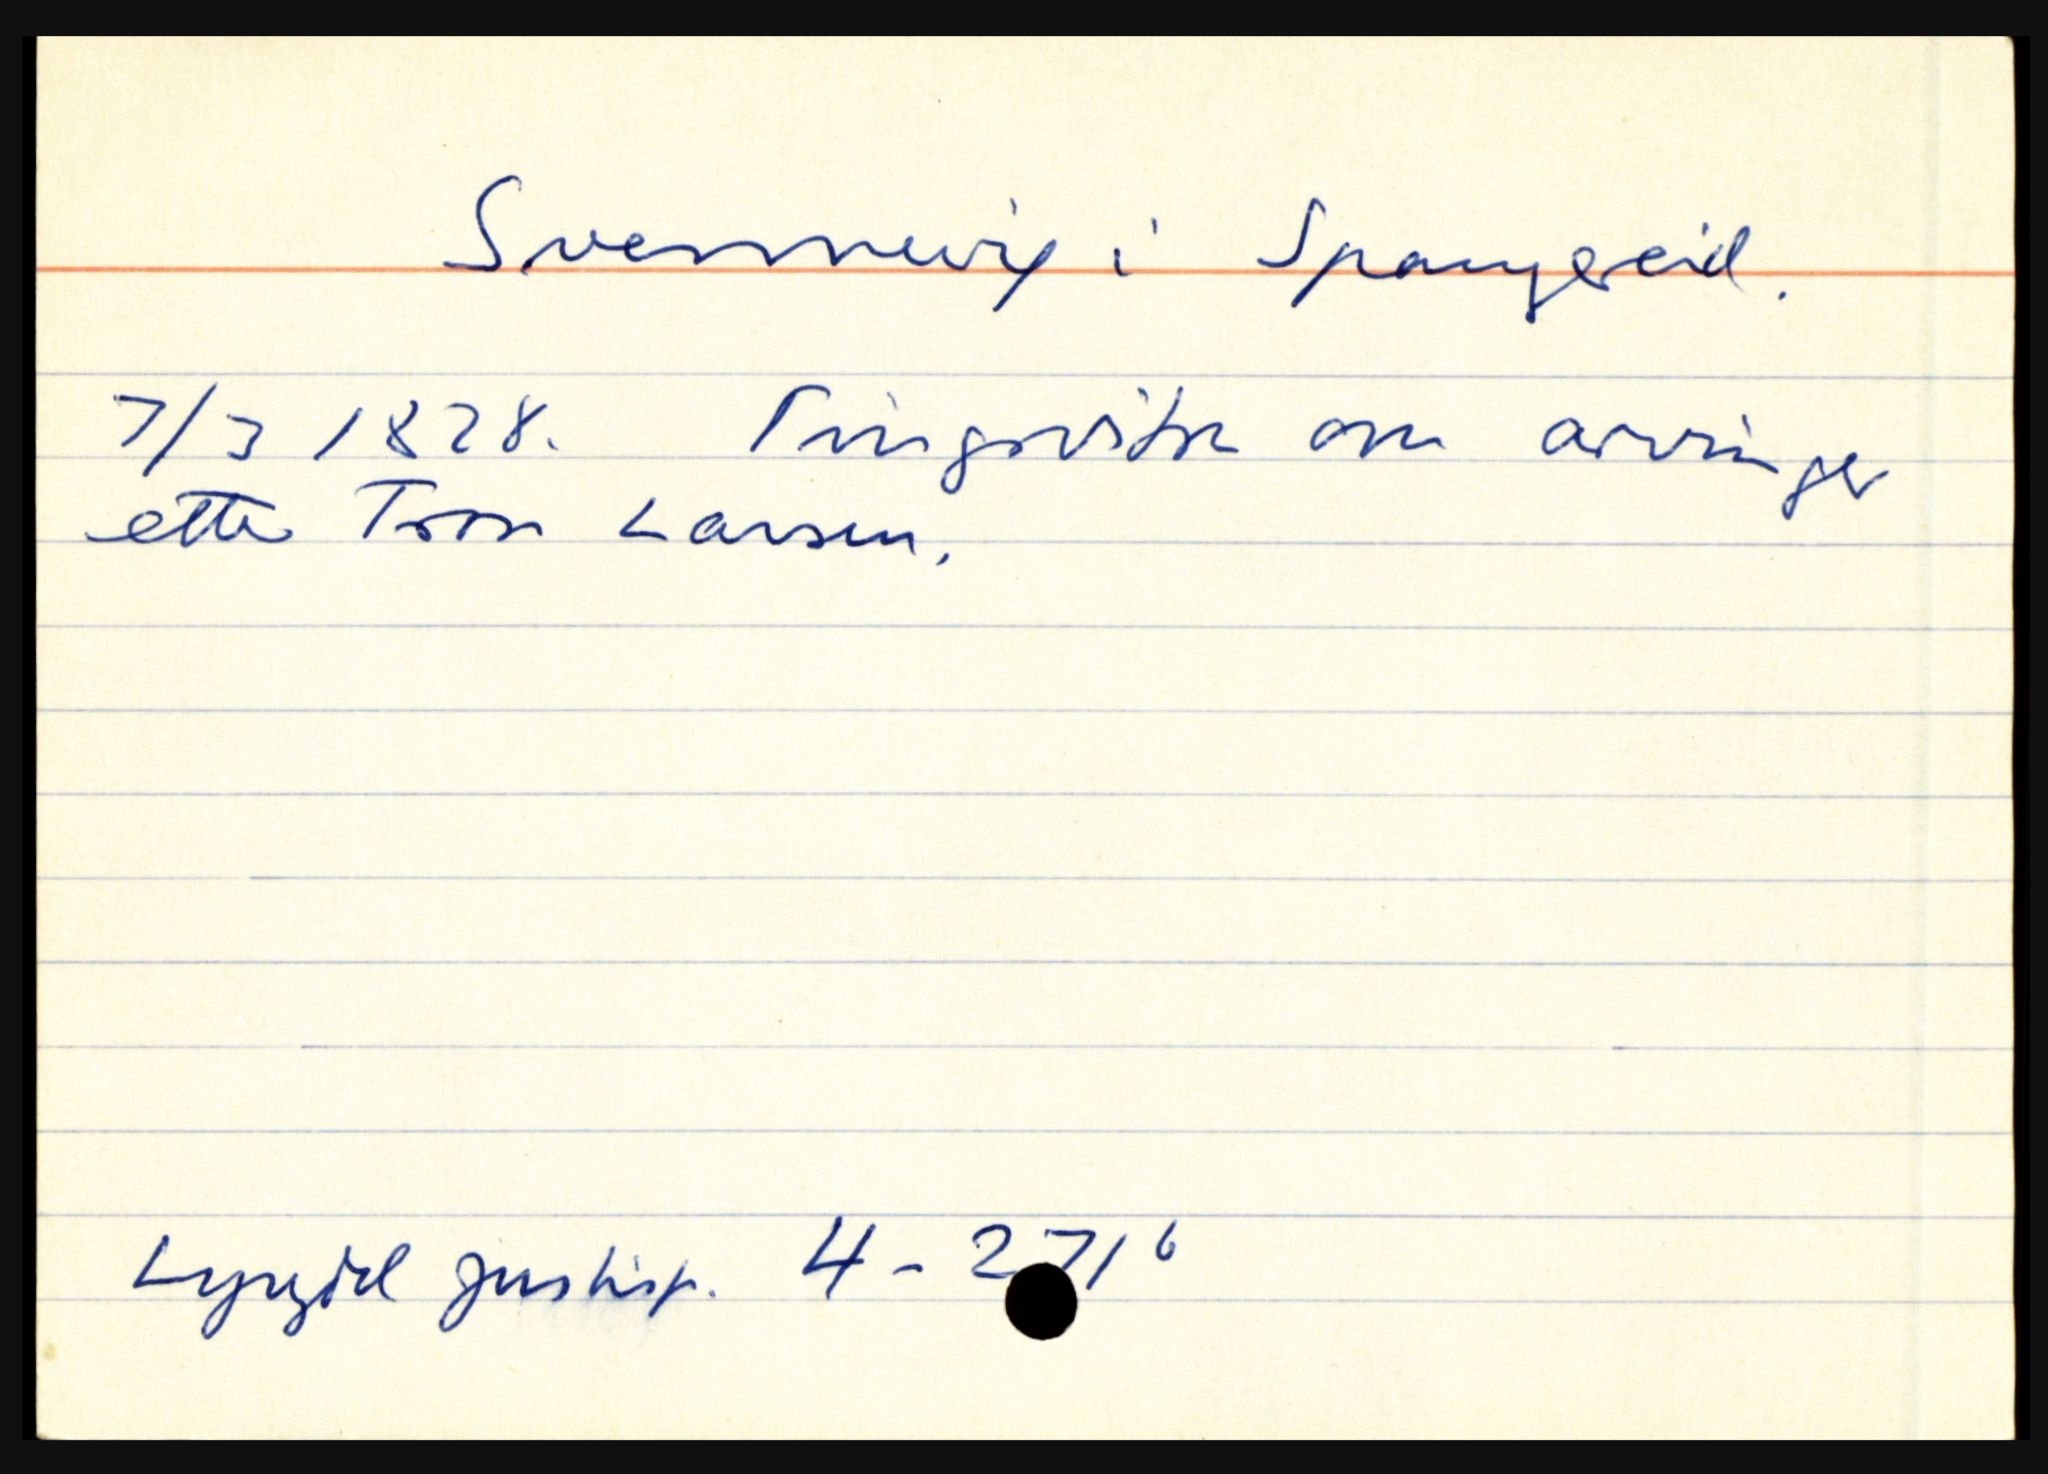 Svennevig i Spangereid.
7/3 1828. Tingsvitne om arvinger
etter Tron Larsen.
Lyngdal justisp. 4 - 271 b